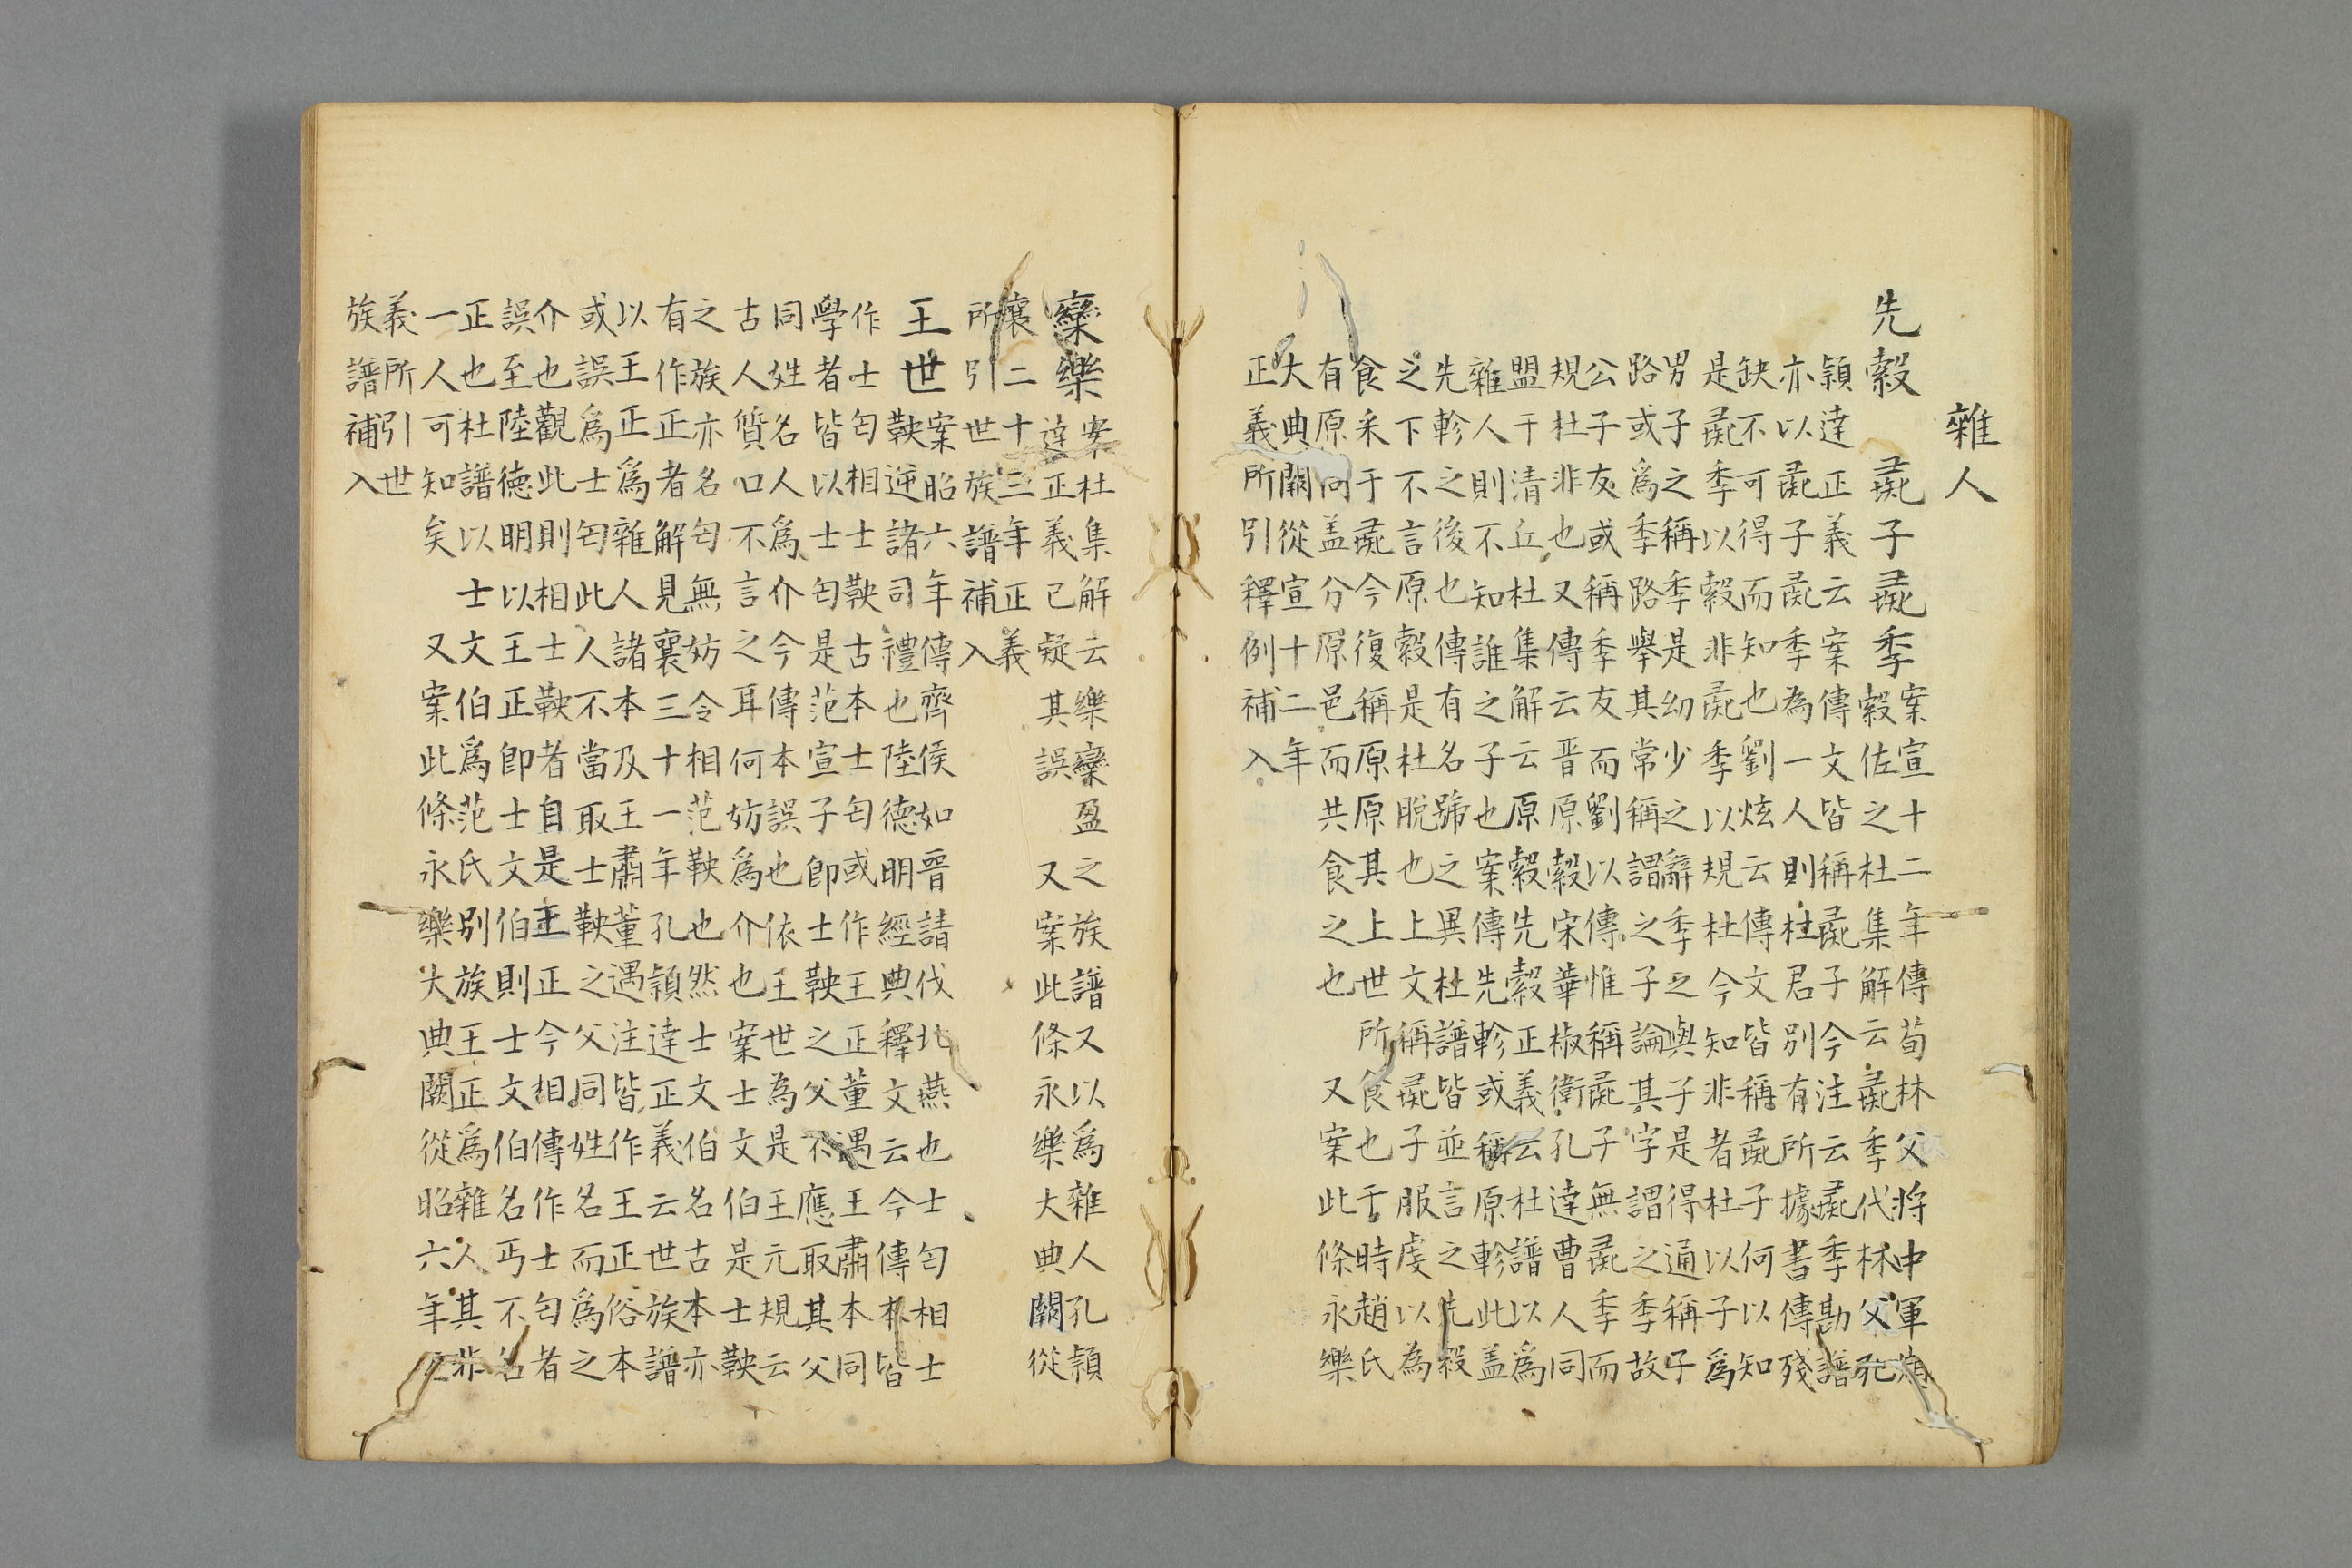 雜人
先縠 彘子彘季
案宣十二年傳荀林父將中軍先
縠佐之杜集解云彘季代林父孔
穎達正義云案傳文皆稱彘子今注云彘季勘譜
亦以彘子彘季為一人則杜君別有所據書傳殘
缺不可得而知也劉炫云傳文皆稱彘子何以知
是彘季以縠非彘季以規杜今知非者杜以子爲
男子之稱季是幼少之辭季之與子是得通稱子
路或爲季路舉其常稱謂之子論其字謂之季故
公子友或稱季友而劉以傳惟稱彘子無彘季而
規杜非也又傳云晋原縠宋華椒衛孔達曹人同
盟于清丘杜集解云原縠先縠正義云杜譜以爲
雜人則不知誰之子也案傳先軫或稱原軫此盖
先軫之後也傳有名號之異杜譜皆並言之先縠
之下不言原縠是杜脫也上文稱彘子服虔以為
食采于彘今復稱原原其上世所食也于時趙氏
有原同盖分原邑而共食之也又案此條永樂
大典闕從宣十二年
正義所引釋例補入
欒樂
案杜集解云樂欒盈之族譜又以爲雜人孔穎
達正義已疑其誤 又案此條永樂大典闕從
襄二十三年正義
所引世族譜補入
王世
案昭六年傳齊侯如晋請伐北燕也士匄相士
鞅逆諸司禮也陸德明經典釋文云今傳本皆
作士匄相士鞅古本士匄或作王正董遇王肅本同
學者皆以士匄是范宣子即士鞅之父不應取其父
同姓名人爲介今傳本誤也依王世為是王元規云
古人質口不言之耳何妨為介也案士文伯是士鞅
之族亦名匄無妨令相范鞅也然士文伯名古本亦
有作正者解見襄三十一年孔穎達正義云世族譜
以王正爲雜人諸本及王肅董遇注皆作王正俗本
或誤爲士匄此人不當取士鞅之父同姓名而爲之
介也觀此則相士鞅者自是王正今相傳作士匄者
誤至陸德明以王正即士文伯則士文伯名丐不名
正也杜譜以士文伯爲范氏別族王正爲雜人其非
一人可知矣 又案此條永樂大典闕從昭六年正
義所引世
族譜補入